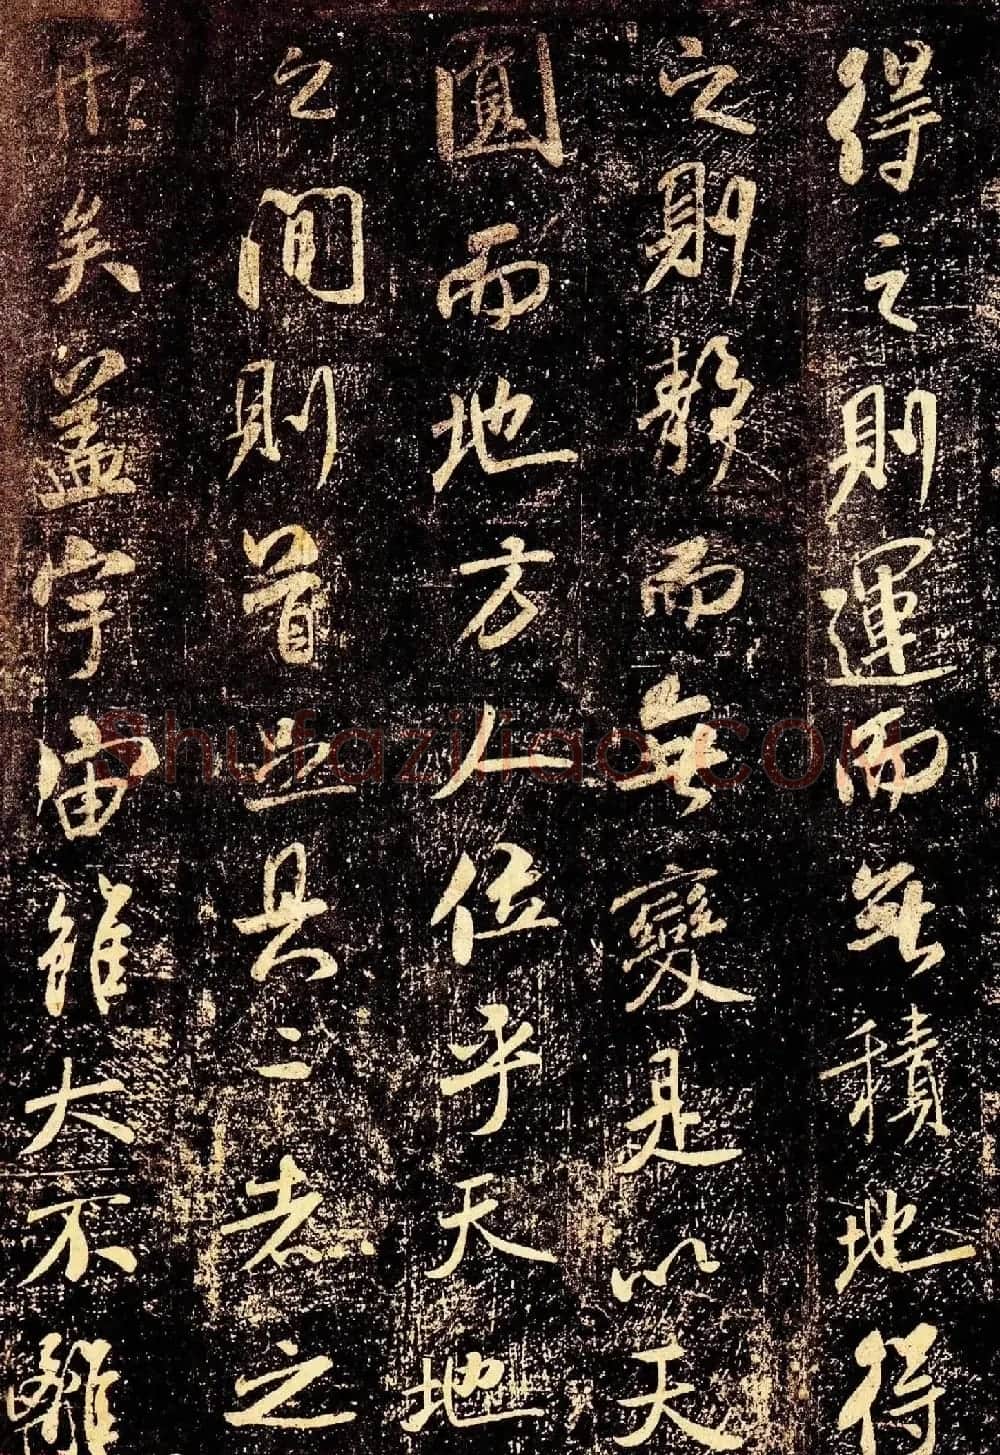 得之則運而無積地得
之則靜而無變是以天
圓而地方人位乎天地
之間則首出具二者之
形矣蓋宇宙雖大不離
Shufaziliao.com